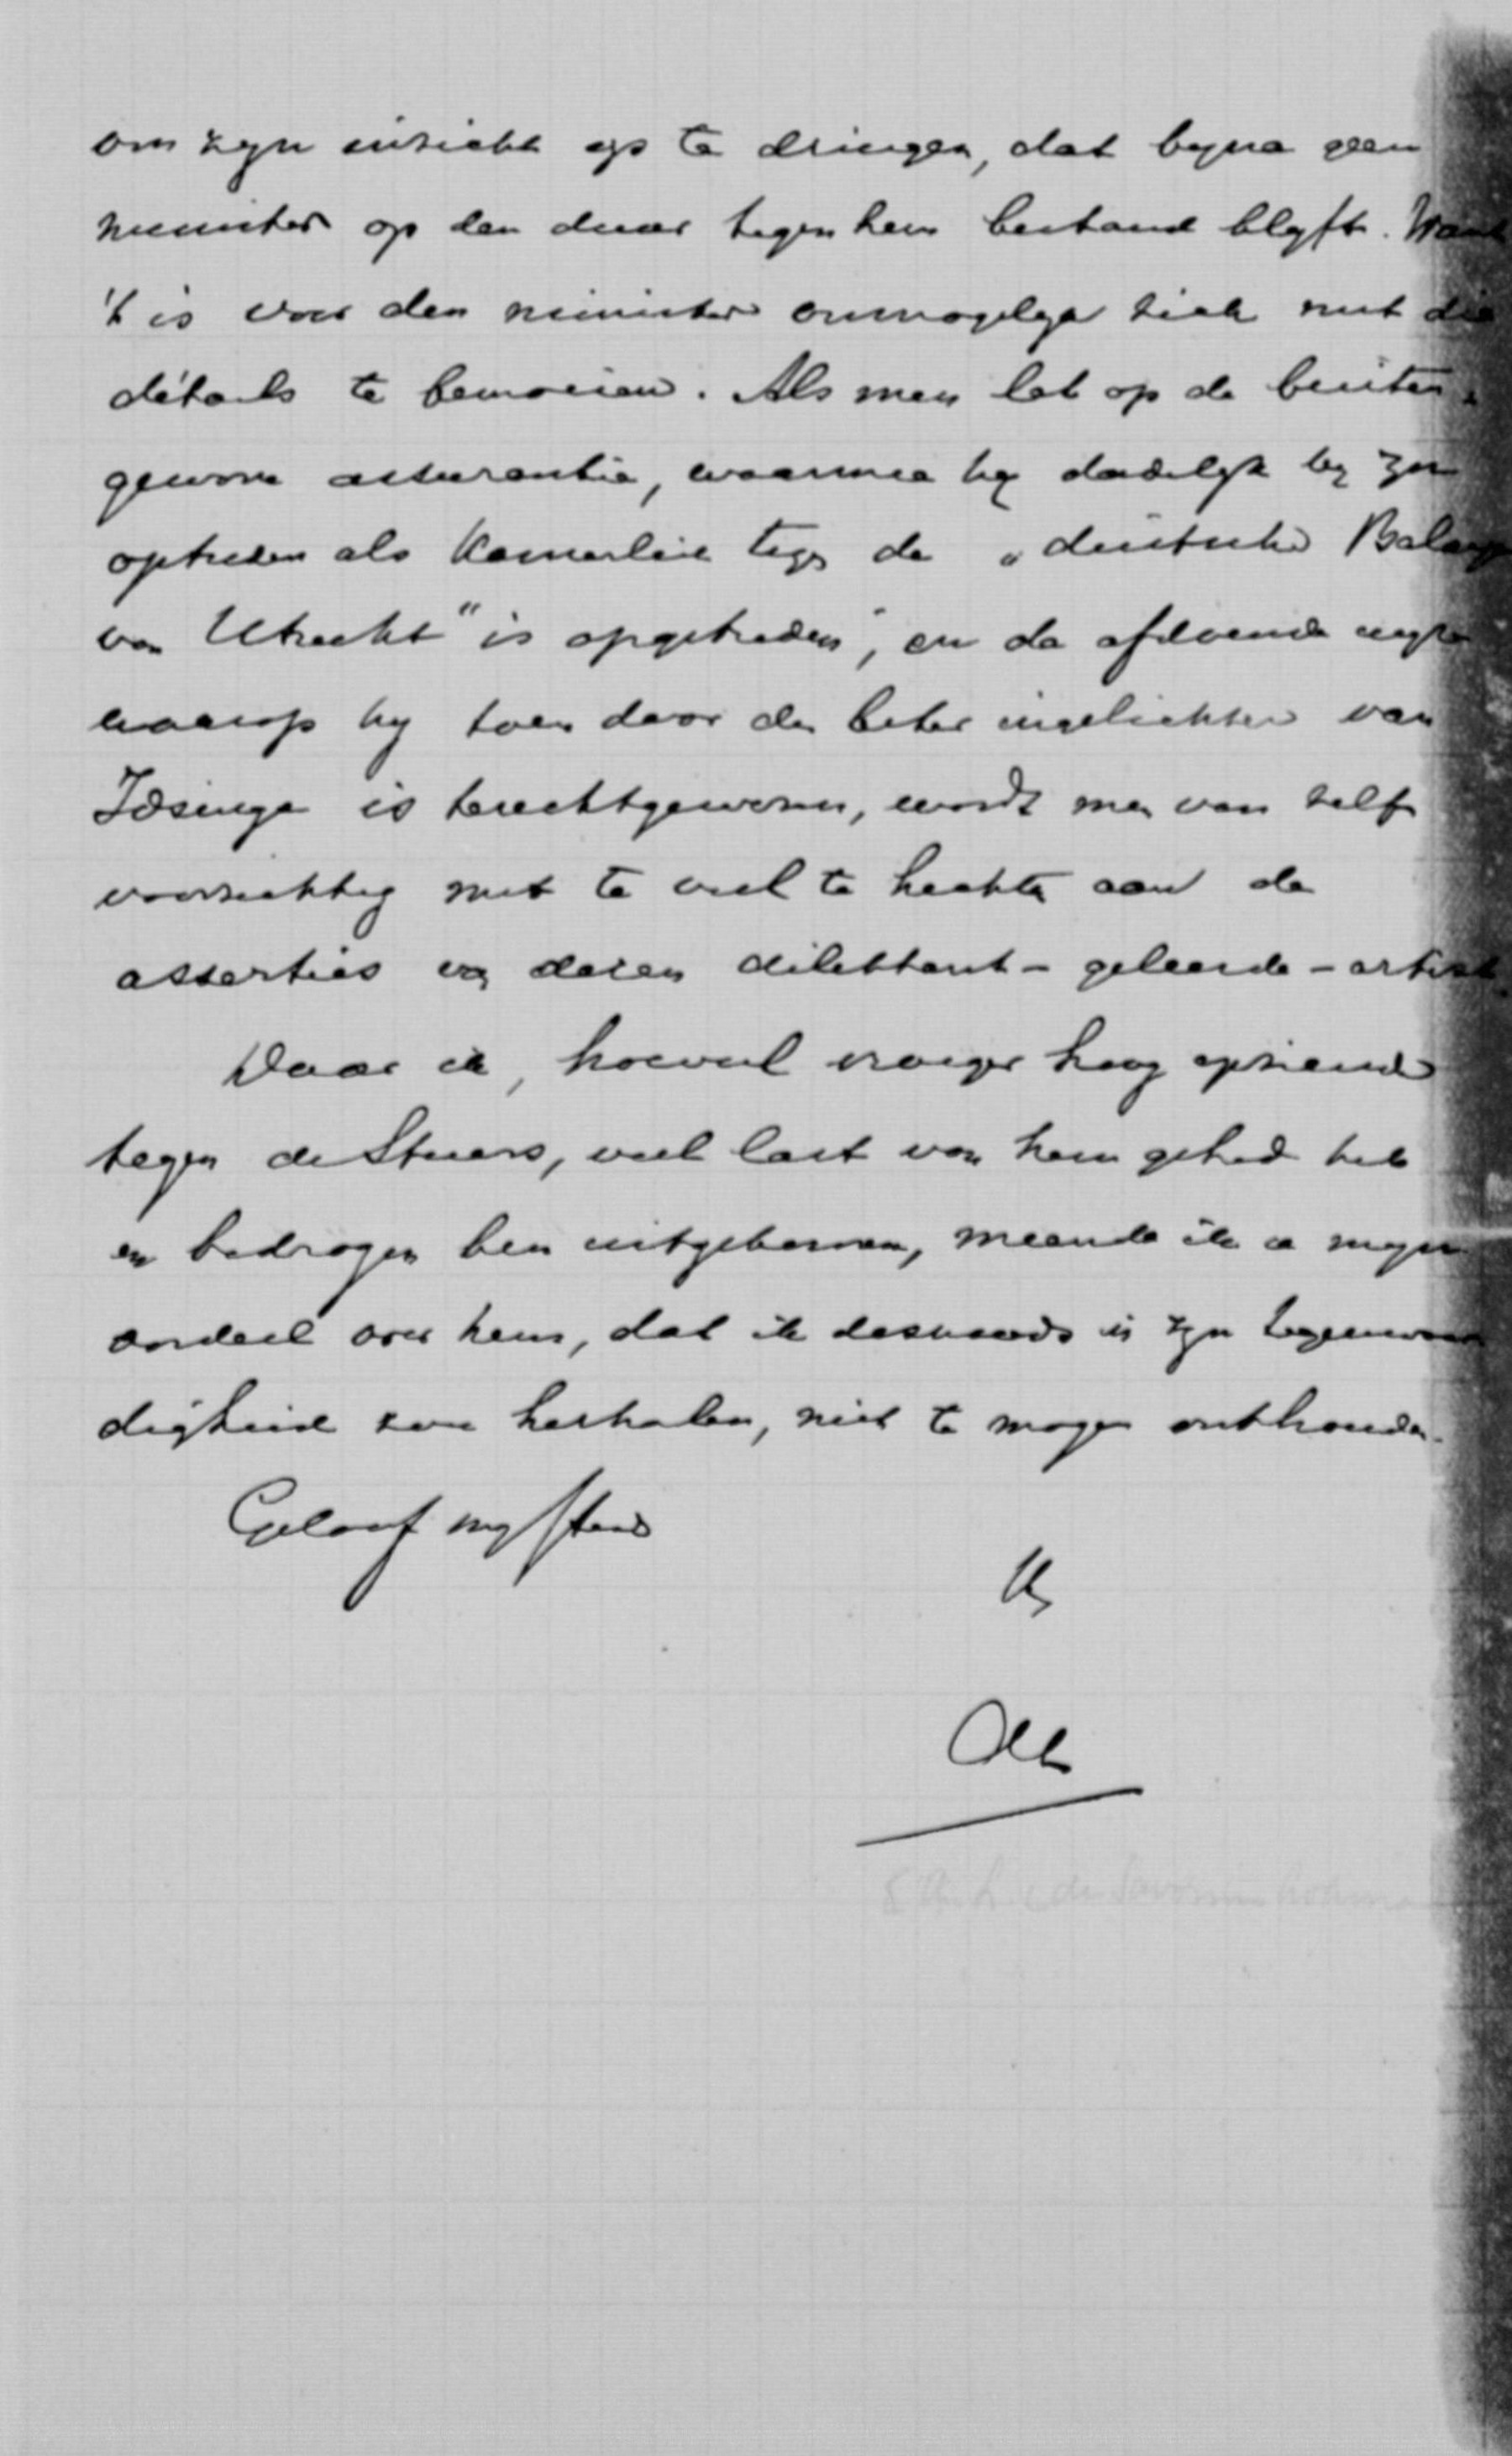 om zyn inzicht op te dringen, dat byna geen
minister op den duur tegen hem bestand blyft. Want
't is voor den minister onmogelyk zich met die
détails te bemoeien. Als men let op de buiten-
gewone assurantie, waarmee hy dadelyk by zyn
optreden als Kamerlid tegen de „duitsche Balye
van Utrecht" is opgetreden, en de afdoende wyze
waarop hy toen door den beter ingelichten van
Idsinga is terechtgewezen, wordt men van zelf
voorzichtig met te veel te hechten aan de
asserties van dezen dilettant-geleerde-artist.
Daar ik, hoewel vroeger hoog opziende
tegen de Stuers, veel last van hem gehad heb
en bedrogen ben uitgekomen, meende ik u myn
oordeel over hem, dat ik desnoods in zyn tegenwoor
digheid zou herhalen, niet te mogen onthouden.
Geloof my steeds
de Savornin Lohman